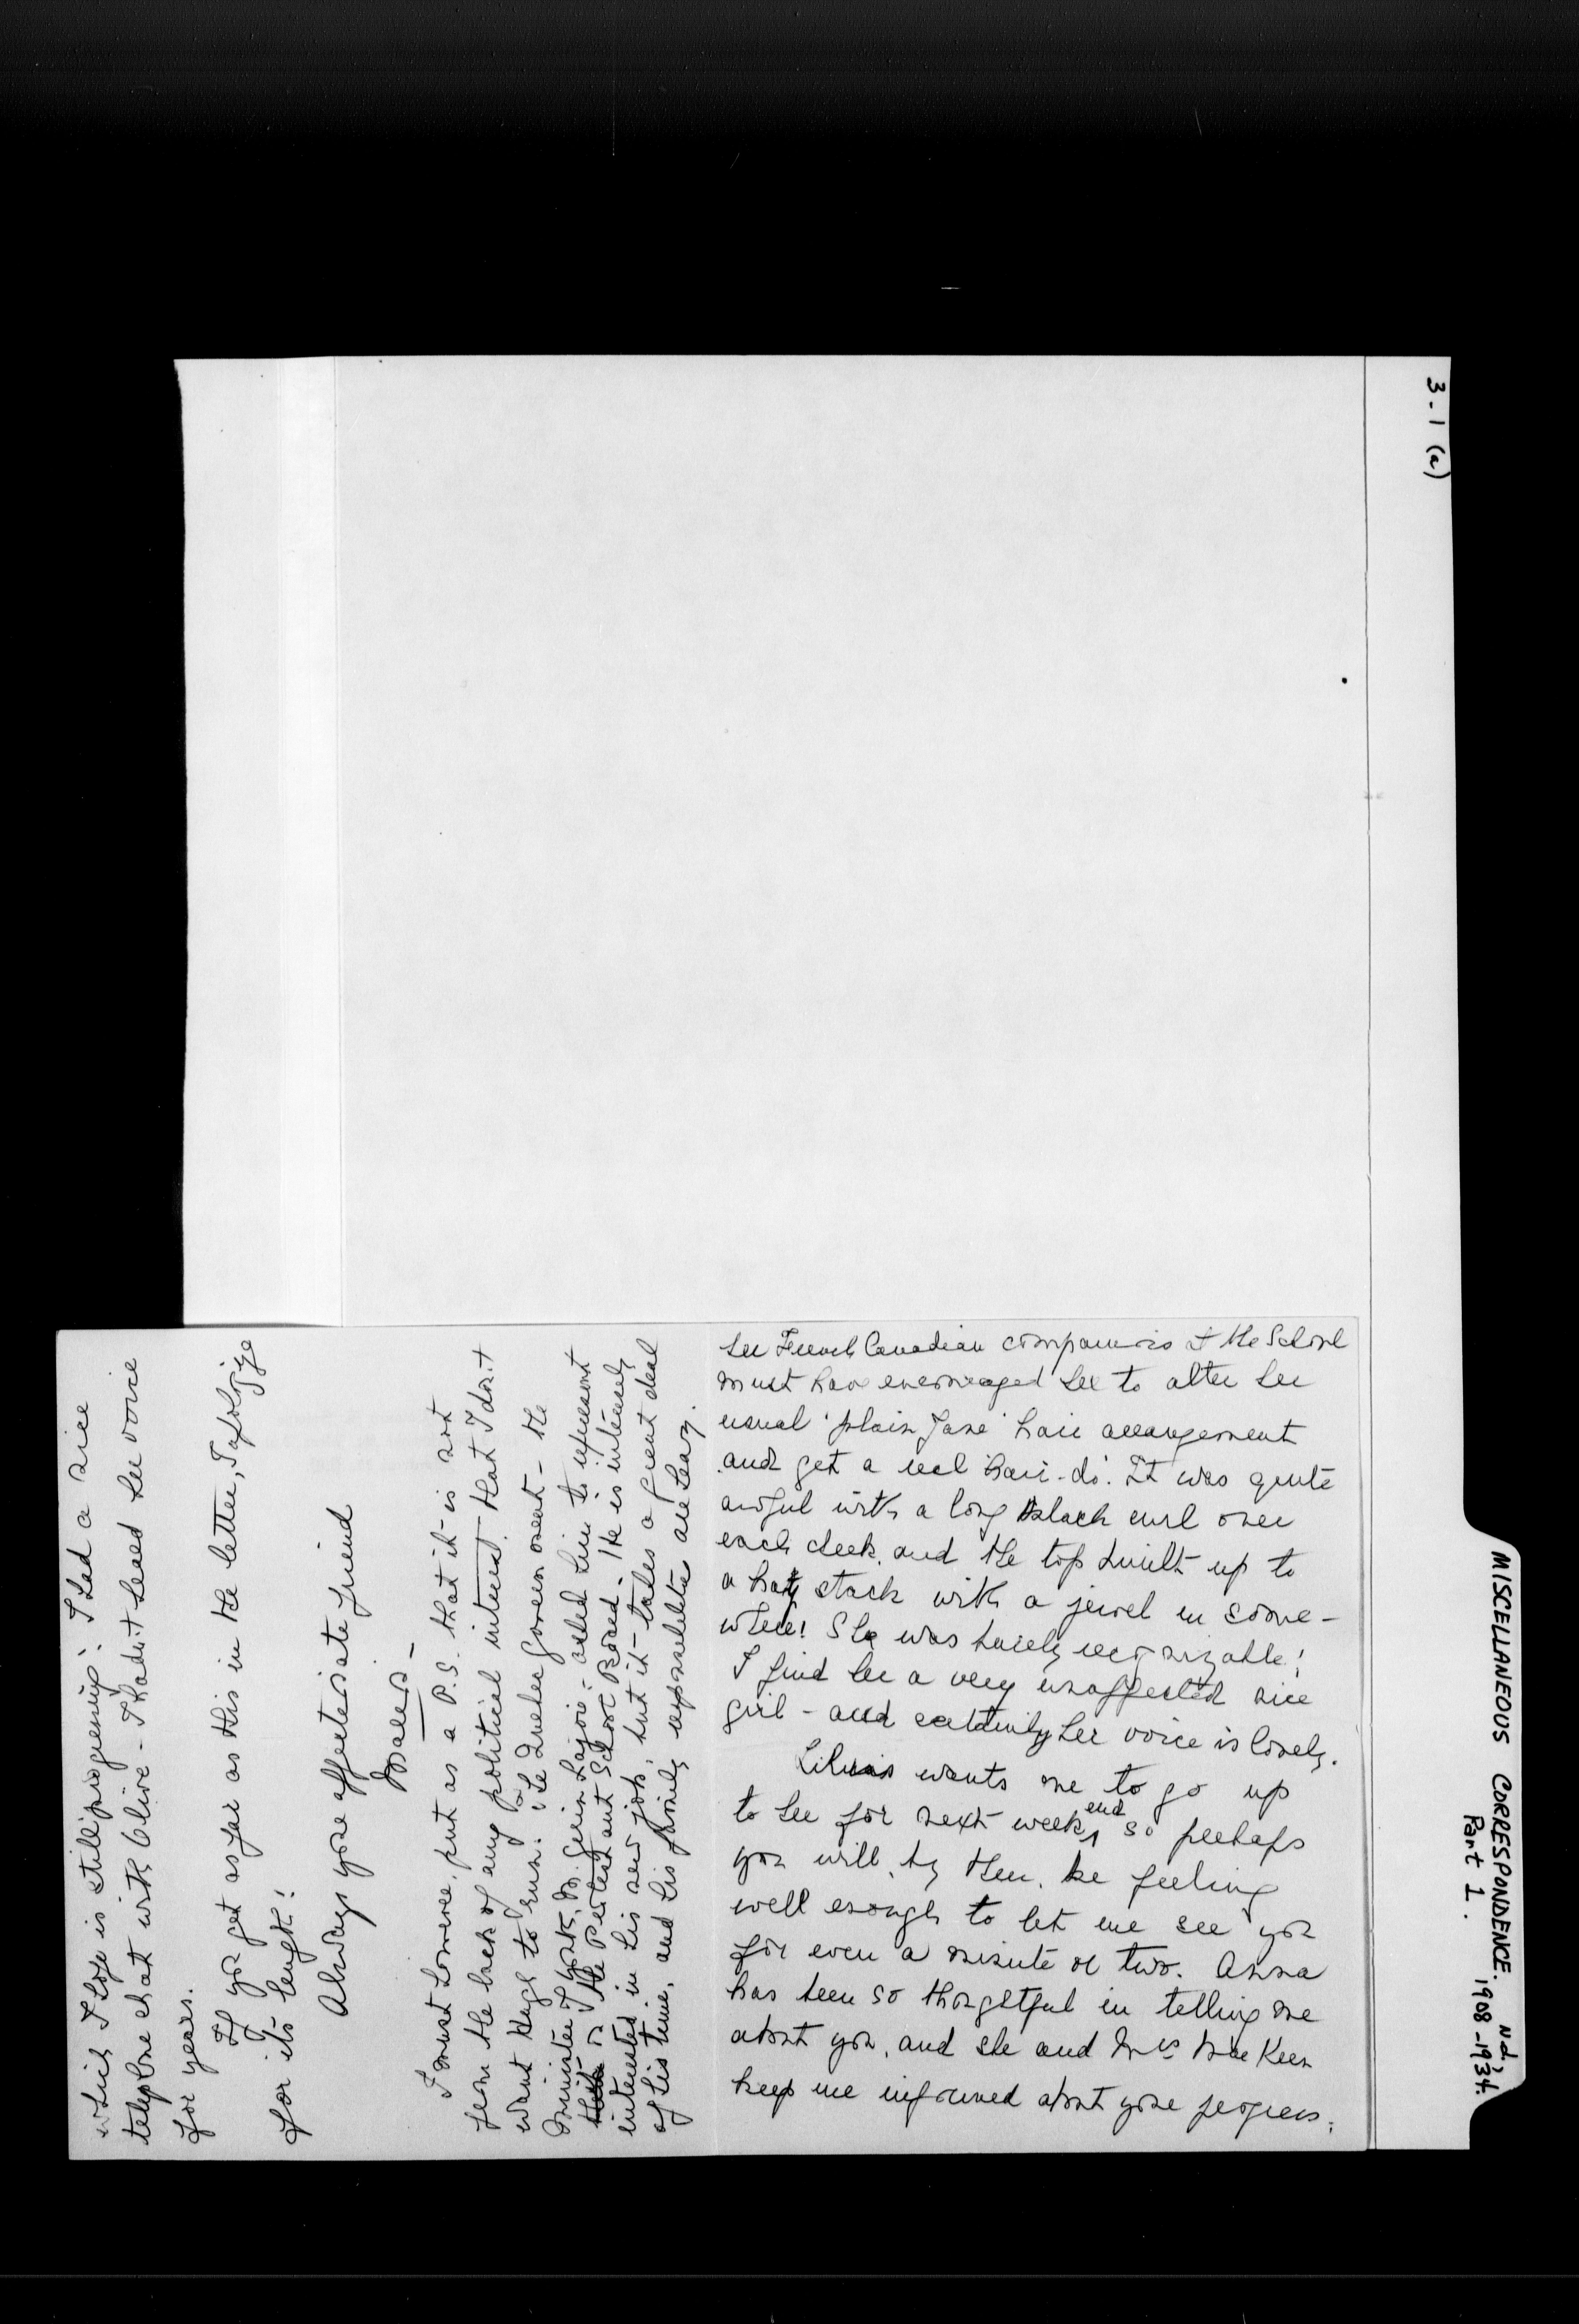 3-1 (a)
MISCELLANEOUS CORRESPONDENCE. n.d.,
1908-1934.
Part 1.
her French Canadian companions at the School
must have encouraged her to alter her
usual 'plain Jane' hair arrangement
and get a real 'hair-do'. It was quite
awful with a long black curl over
each cheek, and the top built up to
a hay stack with a jewel in some-
where! She was barely recognizable!
I find her a very unaffected nice
girl - and certainly her voice is lovely.
wants me to go up
to her for next week end so perhaps
you will, by then, be feeling
well enough to let me see you
for even a minute or two. Anna
has been so thoughtful in telling me
about you, and she and Mrs MacKeen
keep me informed about your progress,
which I hope is still 'progressing'. I had a nice
telephone chat with Olive - I hadn't heard her voice
for years.
If you get as far as this in the letter, I apologize
for its length!
Always your affectionate friend
I must however, put as a P.S. that it is not
from the lack of any political interest that I don't
want Hugh to run! The Quebec Government - the
Minister I think, M. Guerin Lajoie - asked him to represent
on the Protestant School Board. He is intensely
interested in his new job, but it takes a great deal
of his time, and his family responsibilities are heavy.